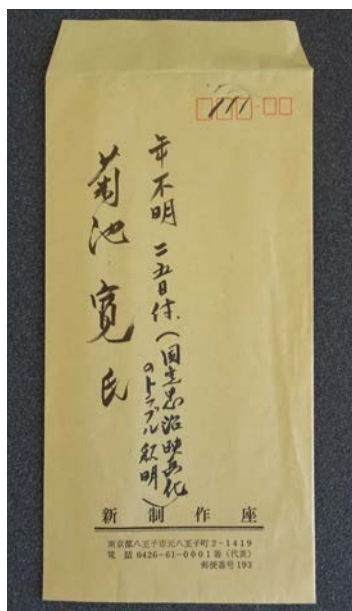 年不明 二五日付(国定忠治映画化
のトラブル釈明)
菊池 寛 氏
新制作座
東京都八王子市元八王子町2-1419
電話 0426-61-0001番(代表)
郵便番号 193